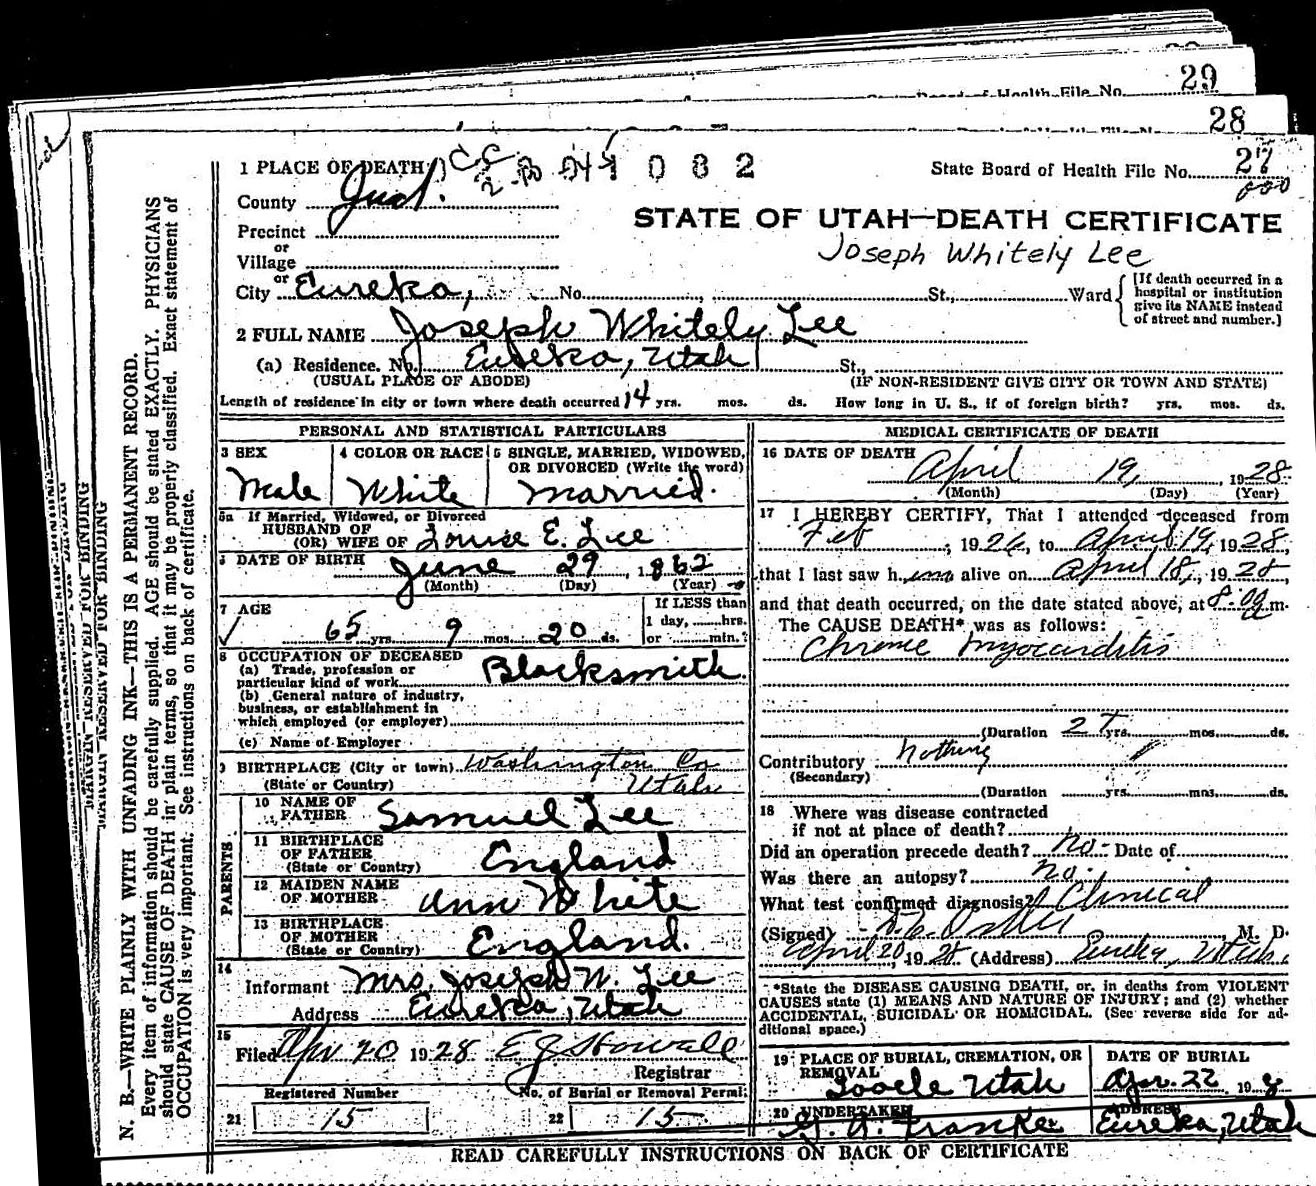 29
State Board of Health File No.
28
1 PLACE OF DEATH
State Board of Health File No. 27
County
STATE OF UTAH—DEATH CERTIFICATE
Precinct
Joseph Whitely Lee
or
Village
or
City Eureka, No. St., Ward
[If death occurred in a hospital or institution give its NAME instead of street and number.]
2 FULL NAME Joseph Whitely Lee
(a) Residence. No. Eureka, Utah St.,
(USUAL PLACE OF ABODE) (IF NON-RESIDENT GIVE CITY OR TOWN AND STATE)
Length of residence in city or town where death occurred 14 yrs. mos. ds. How long in U. S., if of foreign birth? yrs. mos. ds.
PERSONAL AND STATISTICAL PARTICULARS
3 SEX
Male
4 COLOR OR RACE
White
5 SINGLE, MARRIED, WIDOWED, OR DIVORCED (Write the word)
Married.
5a If Married, Widowed, or Divorced
HUSBAND OF
(OR) WIFE OF Louise E. Lee
DATE OF BIRTH June 29, 1862
(Month) (Day) (Year)
7 AGE
65 yrs. 9 mos. 20 ds.
If LESS than
1 day, hrs.
or min.?
8 OCCUPATION OF DECEASED
(a) Trade, profession or
particular kind of work Blacksmith
(b) General nature of industry,
business, or establishment in
which employed (or employer)
(c) Name of Employer
9 BIRTHPLACE (City or town) Washington Co
(State or Country) Utah
PARENTS
10 NAME OF FATHER Samuel Lee
11 BIRTHPLACE OF FATHER England
(State or Country)
12 MAIDEN NAME OF MOTHER Ann White
13 BIRTHPLACE OF MOTHER England.
(State or Country)
14
Informant Mrs Joseph W. Lee
Address Eureka, Utah
15
Filed Apr 20 1928
Registrar
Registered Number
No. of Burial or Removal Permit
21 15
22 15
MEDICAL CERTIFICATE OF DEATH
16 DATE OF DEATH
April 19, 1928
(Month) (Day) (Year)
17 I HEREBY CERTIFY, That I attended deceased from
Feb, 1926, to April 19, 1928
that I last saw him alive on April 18, 1928
and that death occurred, on the date stated above, at m.
The CAUSE DEATH* was as follows:
Chronic Myocarditis
(Duration 2 yrs. mos. ds.
Contributory nothing
(Secondary)
(Duration yrs. mos. ds.
18 Where was disease contracted
if not at place of death?
Did an operation precede death? No- Date of
Was there an autopsy? no.
What test confirmed diagnosis? Clinical
(Signed) , M. D.
April 20 1928 (Address) Eureka, Utah.
*State the DISEASE CAUSING DEATH, or, in deaths from VIOLENT
CAUSES state (1) MEANS AND NATURE OF INJURY; and (2) whether
ACCIDENTAL, SUICIDAL OR HOMICIDAL. (See reverse side for ad-
ditional space.)
19 PLACE OF BURIAL, CREMATION, OR REMOVAL
Tooele Utah
DATE OF BURIAL
Apr. 22 198
20 UNDERTAKER
ADDRESS
Eureka, Utah
READ CAREFULLY INSTRUCTIONS ON BACK OF CERTIFICATE
MARGIN RESERVED FOR BINDING
N. B.—WRITE PLAINLY WITH UNFADING INK—THIS IS A PERMANENT RECORD.
Every item of information should be carefully supplied. AGE should be stated EXACTLY. PHYSICIANS
should state CAUSE OF DEATH in plain terms, so that it may be properly classified. Exact statement of
OCCUPATION is very important. See instructions on back of certificate.